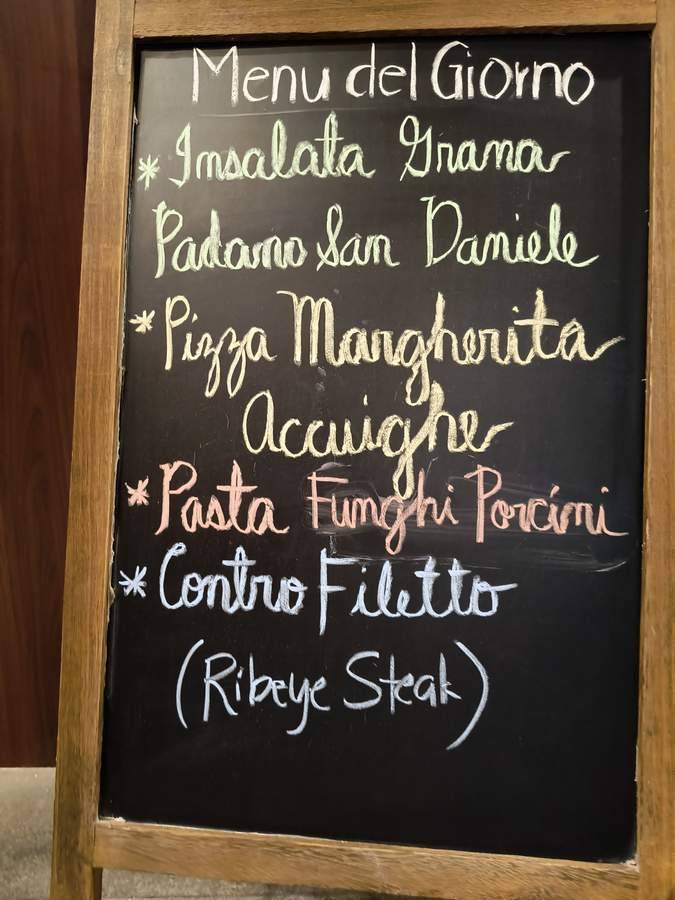 Menu del Giorno
* Insalata Grana
Padano San Daniele
* Pizza Margherita
Accuighe
* Pasta Funghi Porcini
* Contro Filetto
(Ribeye Steak)